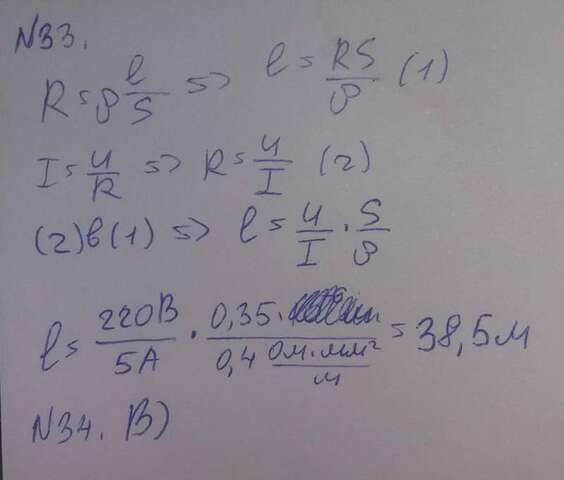 N33.
R = ρ l/S => l = RS/ρ (1)
I = U/R => R = U/I (2)
(2) в (1) => l = U/I · S/ρ
l = 220В/5А · 0,35 · /0,4 Ом·мм²/м = 38,5м
N34. В)